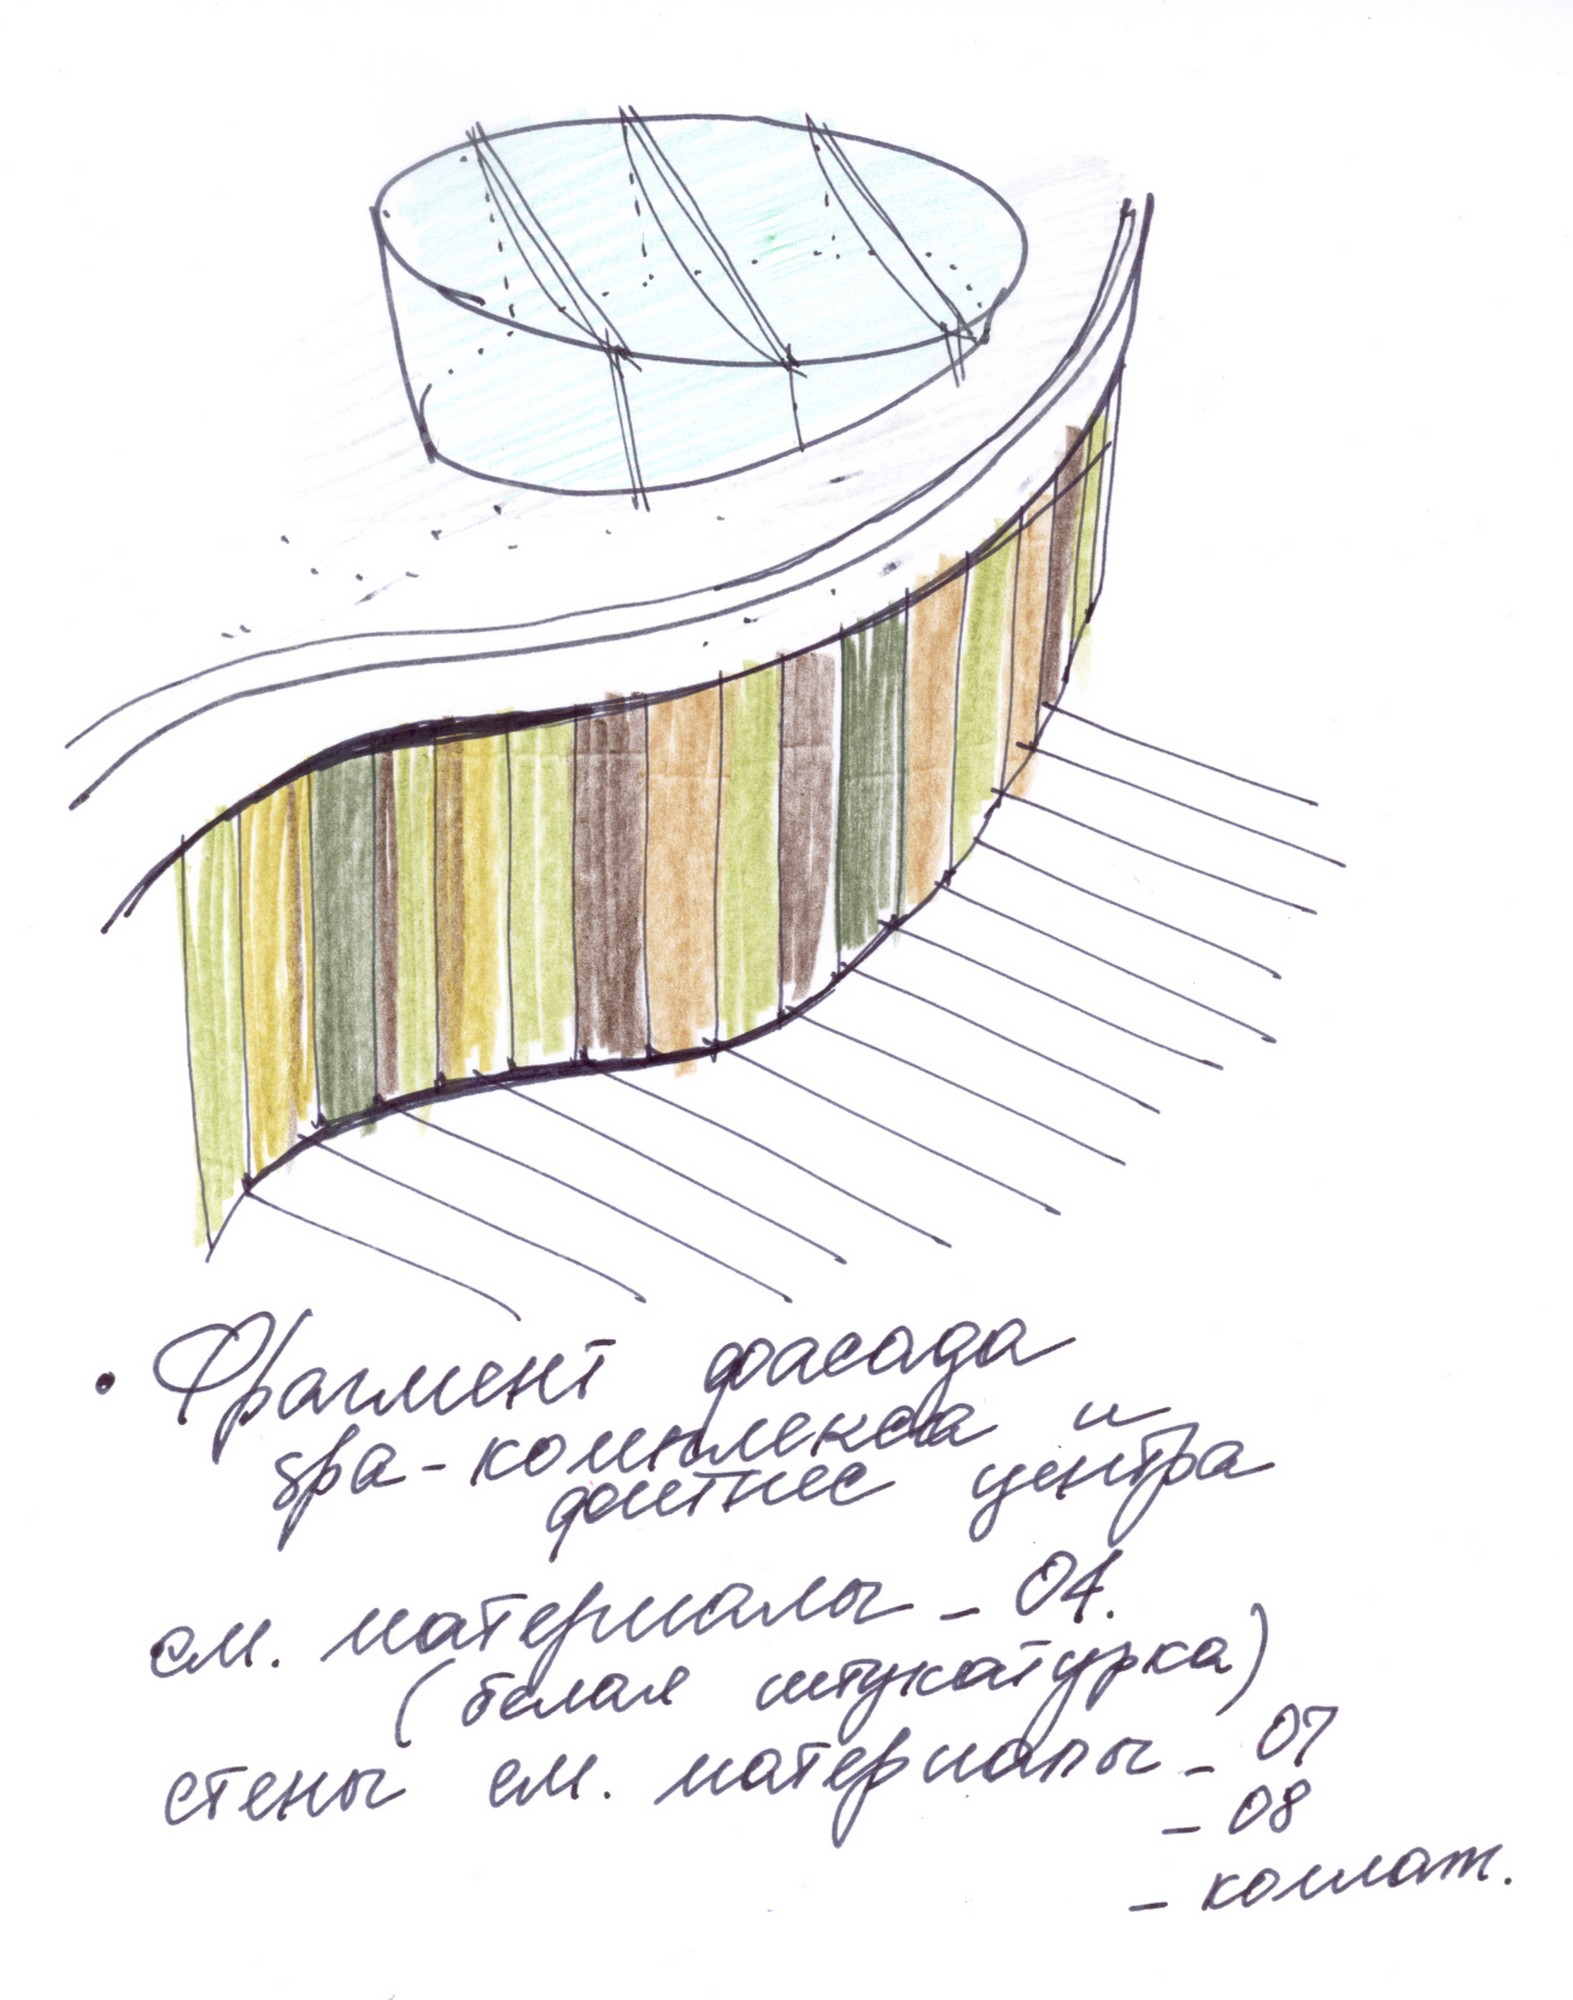 • Фрагмент фасада
spa-комплекса и
фитнес центра
см. материалы - 04.
(белая штукатурка)
стены см. материалы - 07
- 08
- коллаж.